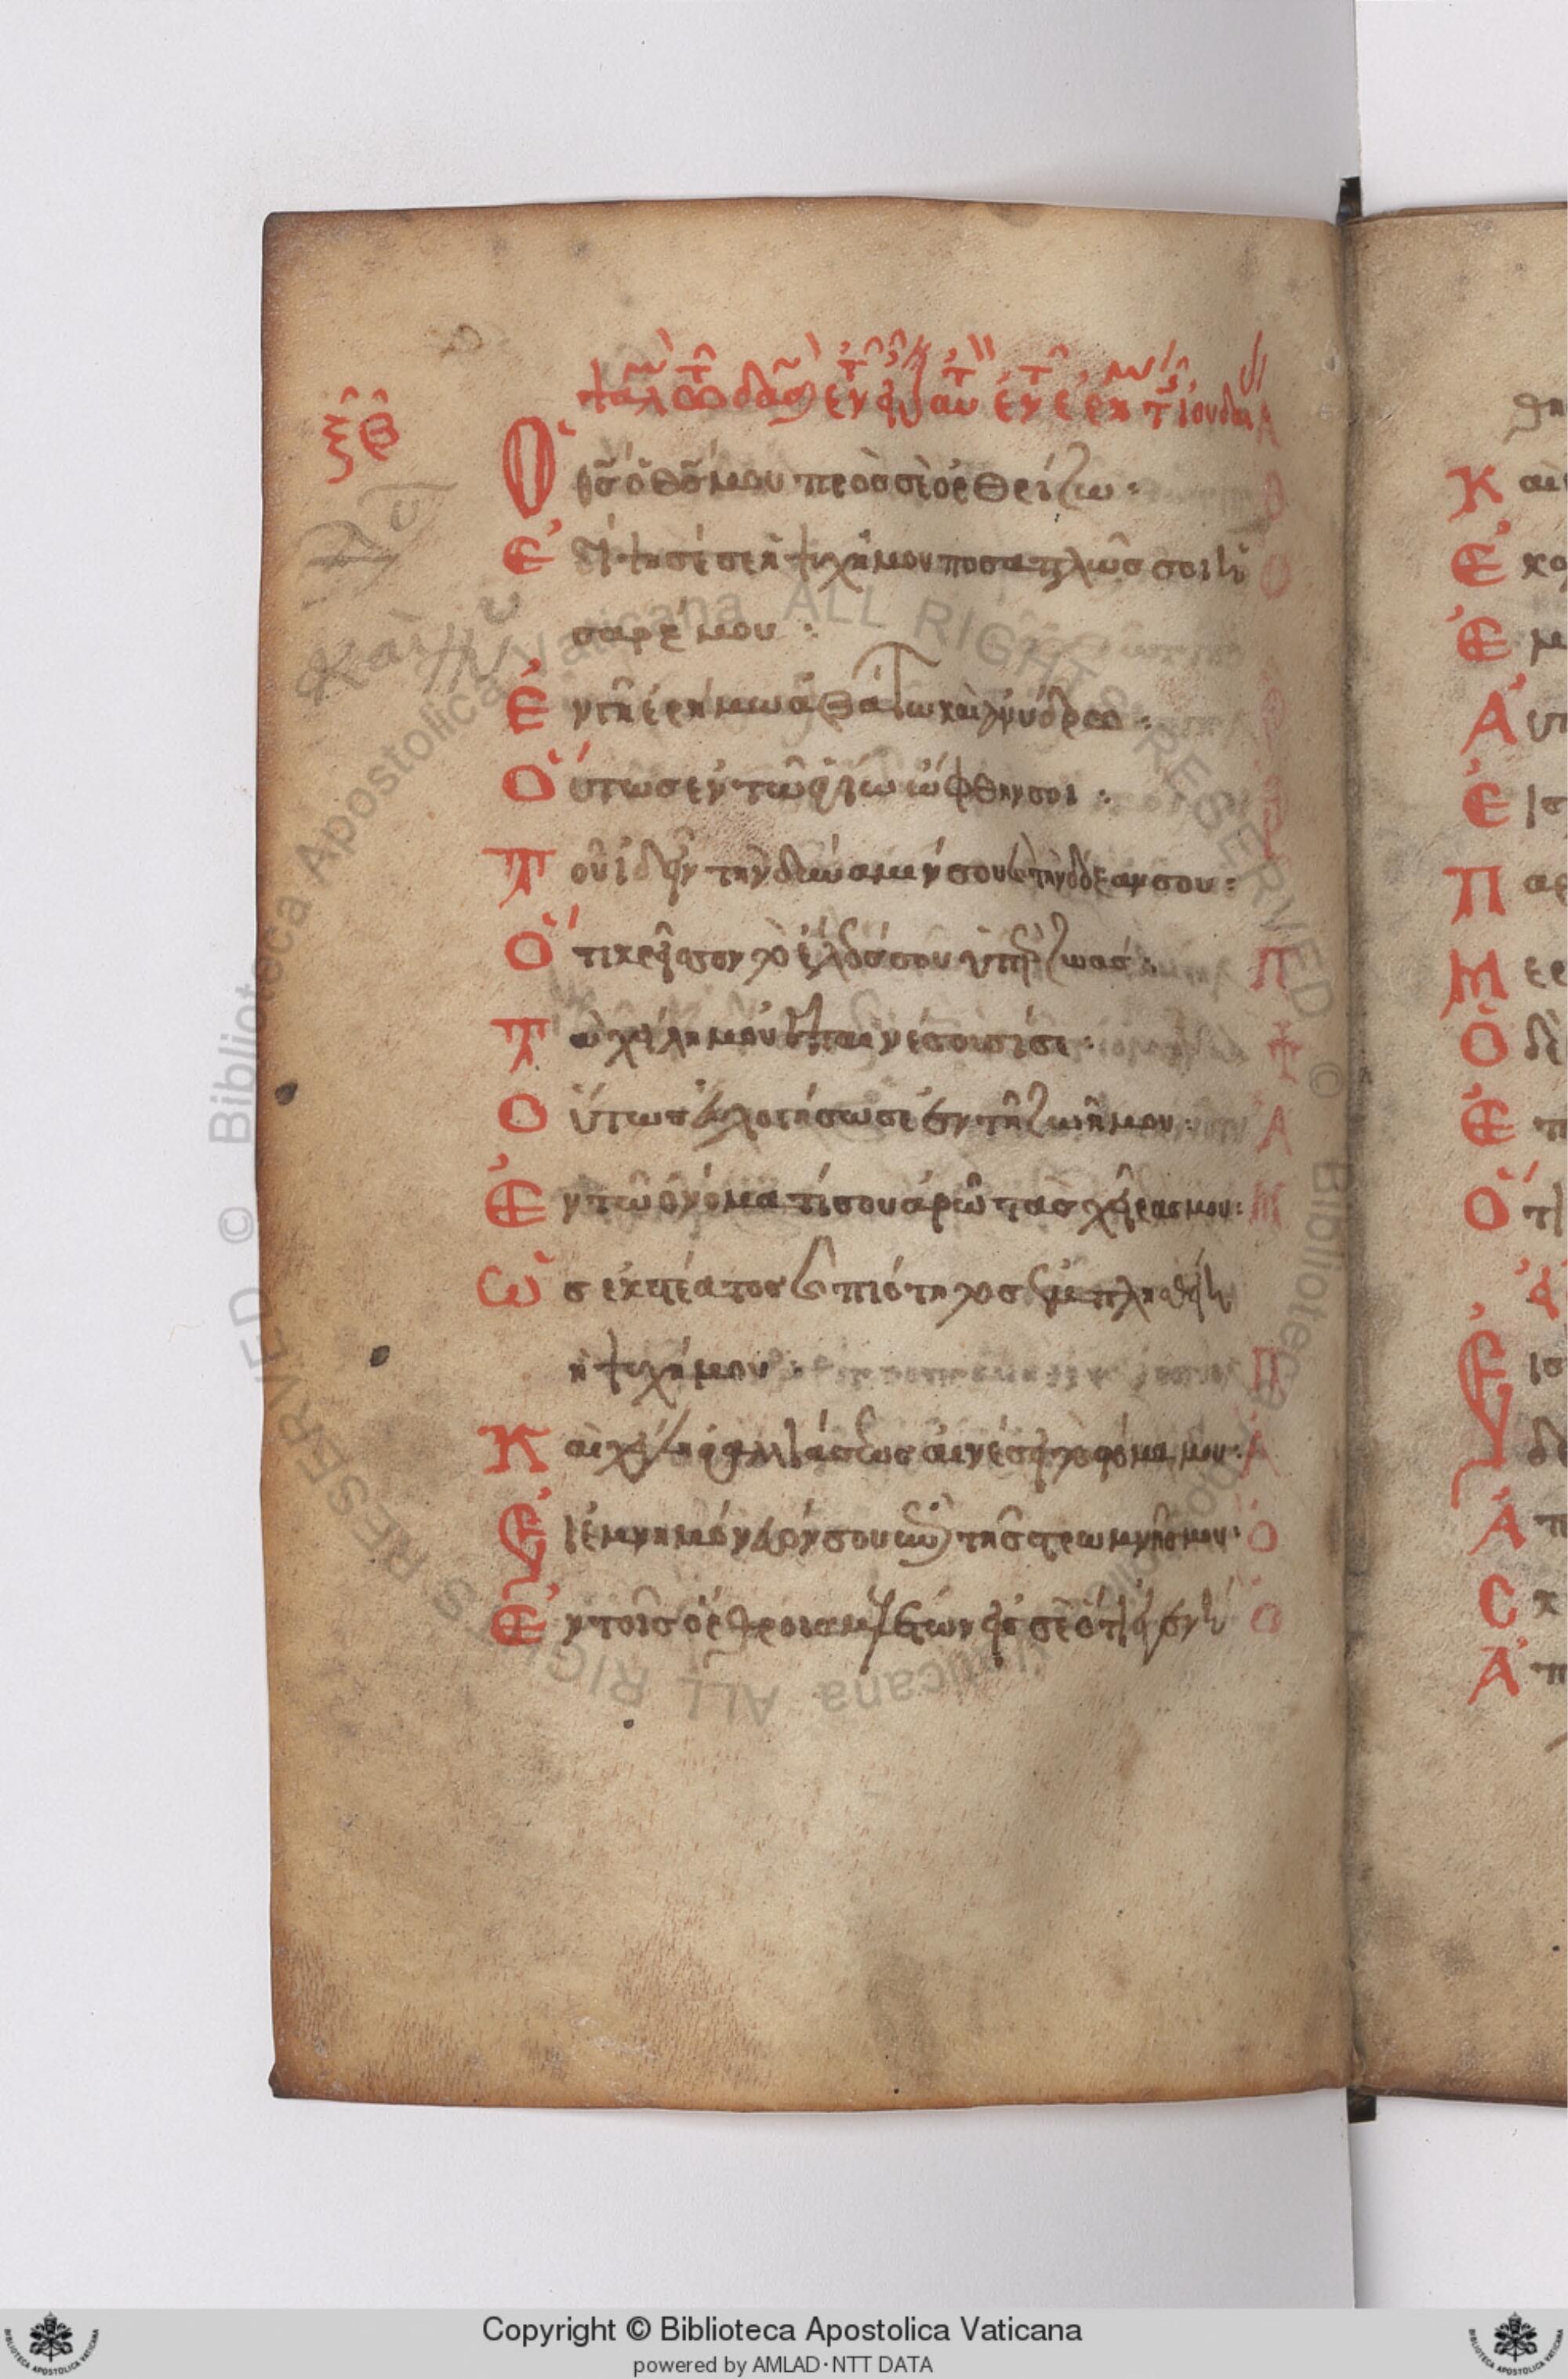 ξβ
ψαλμ τ δαδ ἐν τ εἶναι αυτ ἐν τ ἐρημ τ ἰουδαι
Ὁ θς ὁ θς μου προσ σὲ ὀρθρίζω:
Ἐδίψησέ σε ἡ ψυχή μου ποσαπλῶς σοι ἡ
σάρξ μου:
Ἐν γῆ ἐρήμω ἀβάτω και ἀνύδρω:
Οὕτως ἐν τῶ ἁγίω ὤφθην σοι:
Τοῦ ἰδεῖν την δύναμιν σου και την δόξαν σου:
Ὅτι κρεῖσσον το ἔλεός σου ὑπερ ζωάς:
Τα χείλη μου ἐπαινέσουσί σε:
Οὕτως εὐλογήσω σε ἐν τῆ ζωῆ μου:
Ἐν τῶ ὀνόματί σου ἀρῶ τας χεῖρας μου:
Ὡς ἐκ στέατος και πιότητος ἐμπλησθείη
ἡ ψυχή μου:
Καὶ χείλη ἀγαλλιάσεως αἰνέσει το στόμα μου:
Εἰ ἐμνημόνευόν σου ἐπι τῆς στρωμνῆς μου:
Ἐν τοῖς ὄρθροις ἐμελέτων εἰς σὲ ὅτι ἐγενή
Copyright © Biblioteca Apostolica Vaticana
powered by AMLAD·NTT DATA